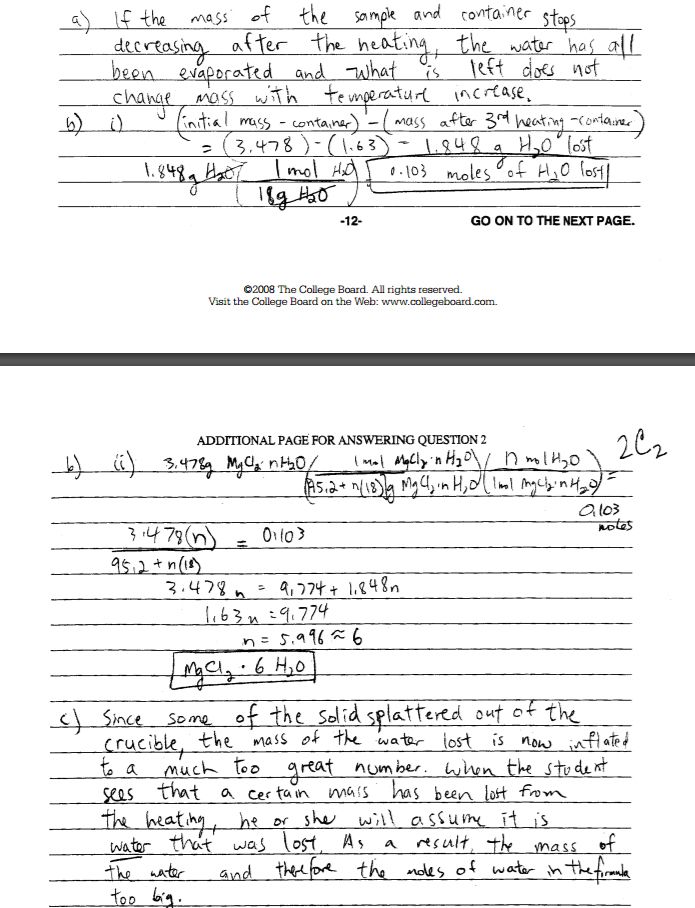 a) If the mass of the sample and container stops
decreasing after the heating, the water has all
been evaporated and what is left does not
change mass with temperature increase.
b) i) (initial mass - container) - (mass after 3rd heating - container)
= (3.478) - (1.63) = 1.848 g H2O lost
1.848g H2O / 1 mol H2O / 18g H2O = 0.103 moles of H2O lost
-12-
GO ON TO THE NEXT PAGE.
©2008 The College Board. All rights reserved.
Visit the College Board on the Web: www.collegeboard.com.
ADDITIONAL PAGE FOR ANSWERING QUESTION 2
2C2
b) (ii) 3.478g MgCl2·nH2O (1 mol MgCl2·nH2O / (95.2 + n(18))g MgCl2·nH2O) (n mol H2O / 1 mol MgCl2·nH2O) =
0.103 moles
3.478(n) / 95.2 + n(18) = 0.103
3.478n = 9.774 + 1.848n
1.63n = 9.774
n = 5.996 ≈ 6
MgCl2 · 6 H2O
c) Since some of the solid splattered out of the
crucible, the mass of the water lost is now inflated
to a much too great number. When the student
sees that a certain mass has been lost from
the heating, he or she will assume it is
water that was lost. As a result, the mass of
the water and therefore the moles of water in the formula
too big.